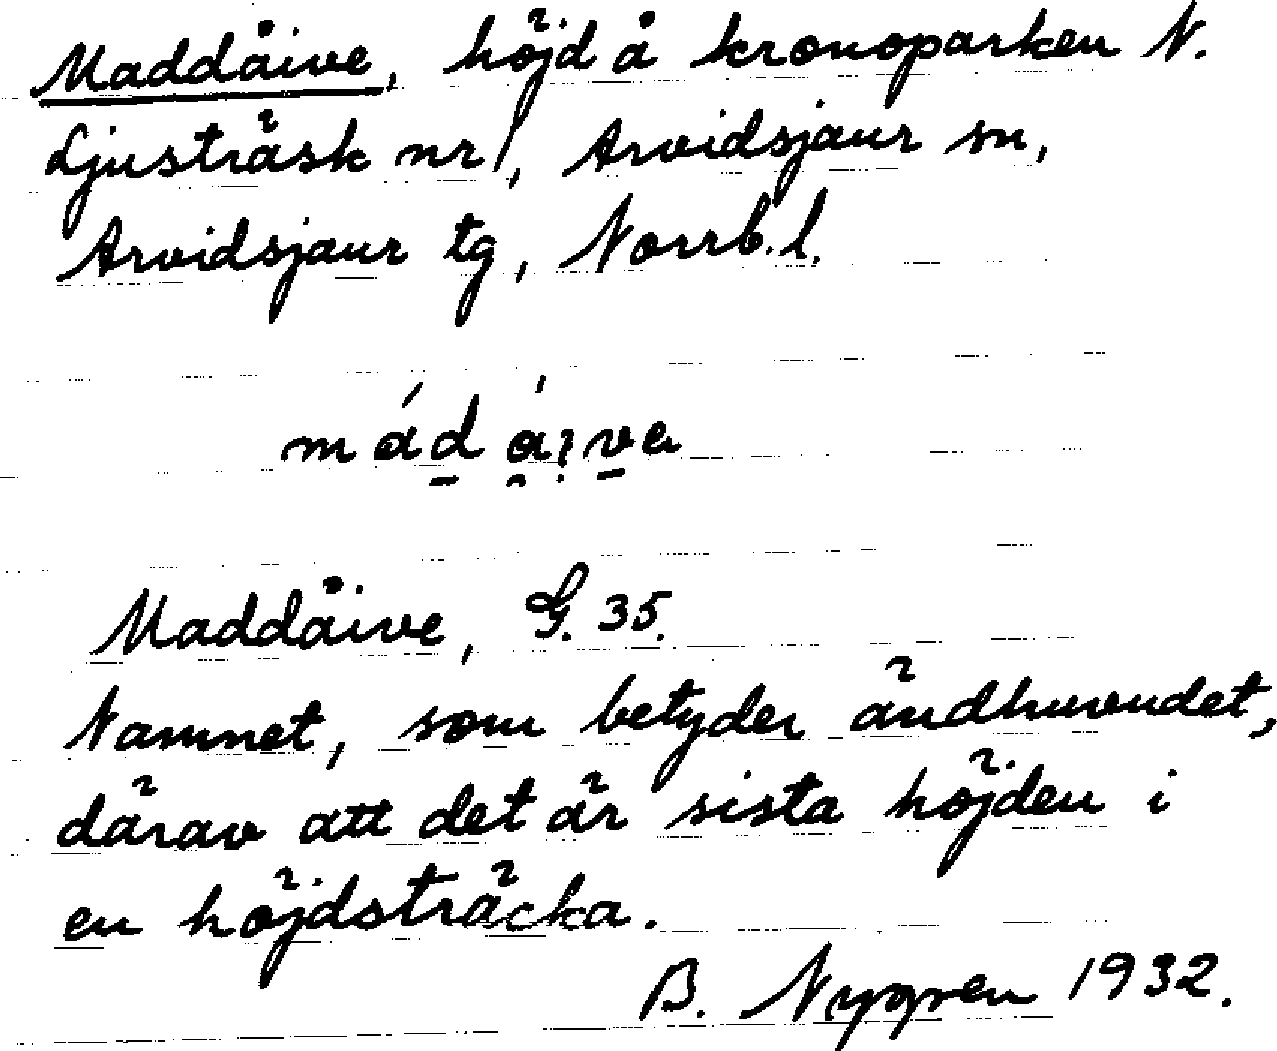 Maddåive, höjd å kronoparken N.
Ljusträsk nr 1, Arvidsjaur sn,
Arvidsjaur tg, Norrb. l.
Maddåive, G. 35.
Namnet, som betyder ändhuvudet,
därav att det är sista höjden i
en höjdsträcka.
B. Nygren 1932.